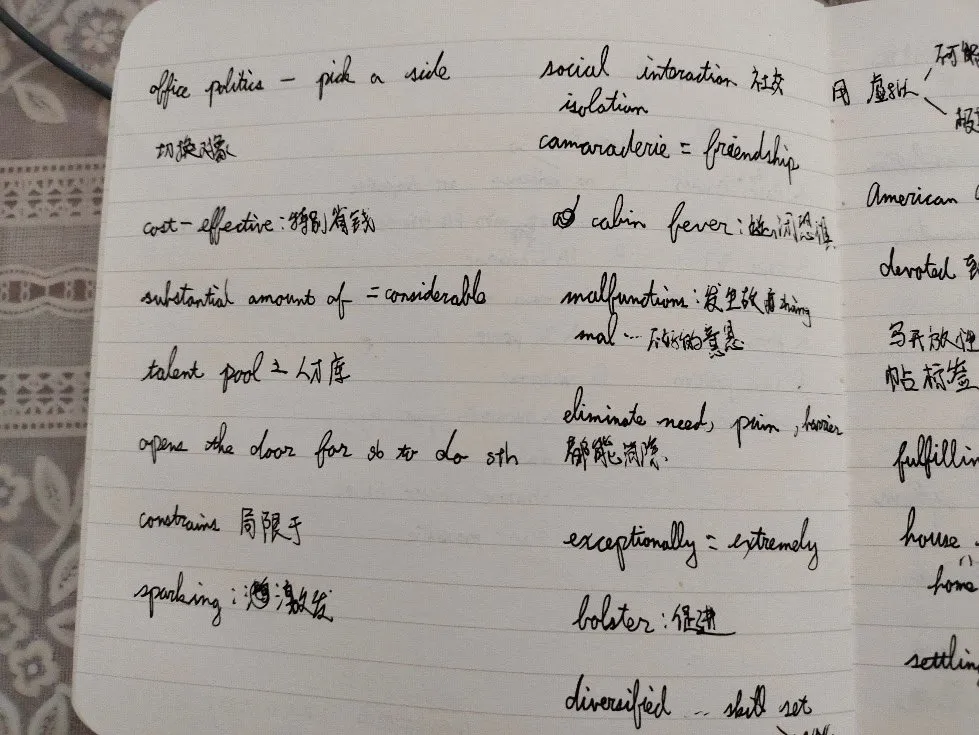 office politics - pick a side
切换对象
cost-effective：特别省钱
substantial amount of = considerable
talent pool 人才库
opens the door for sb to do sth
constrains 局限于
sparking：激发
social interaction 社交
isolation
camaraderie = friendship
cabin fever：幽闭恐惧
malfunctions：发生故障
mal … 不好的意思
eliminate need, pain, barrier
都能消除.
exceptionally = extremely
bolster：促进
diversified … skill set
用 虚拟
American
devoted
写开放性
帖标签
fulfillin
house
home
settling